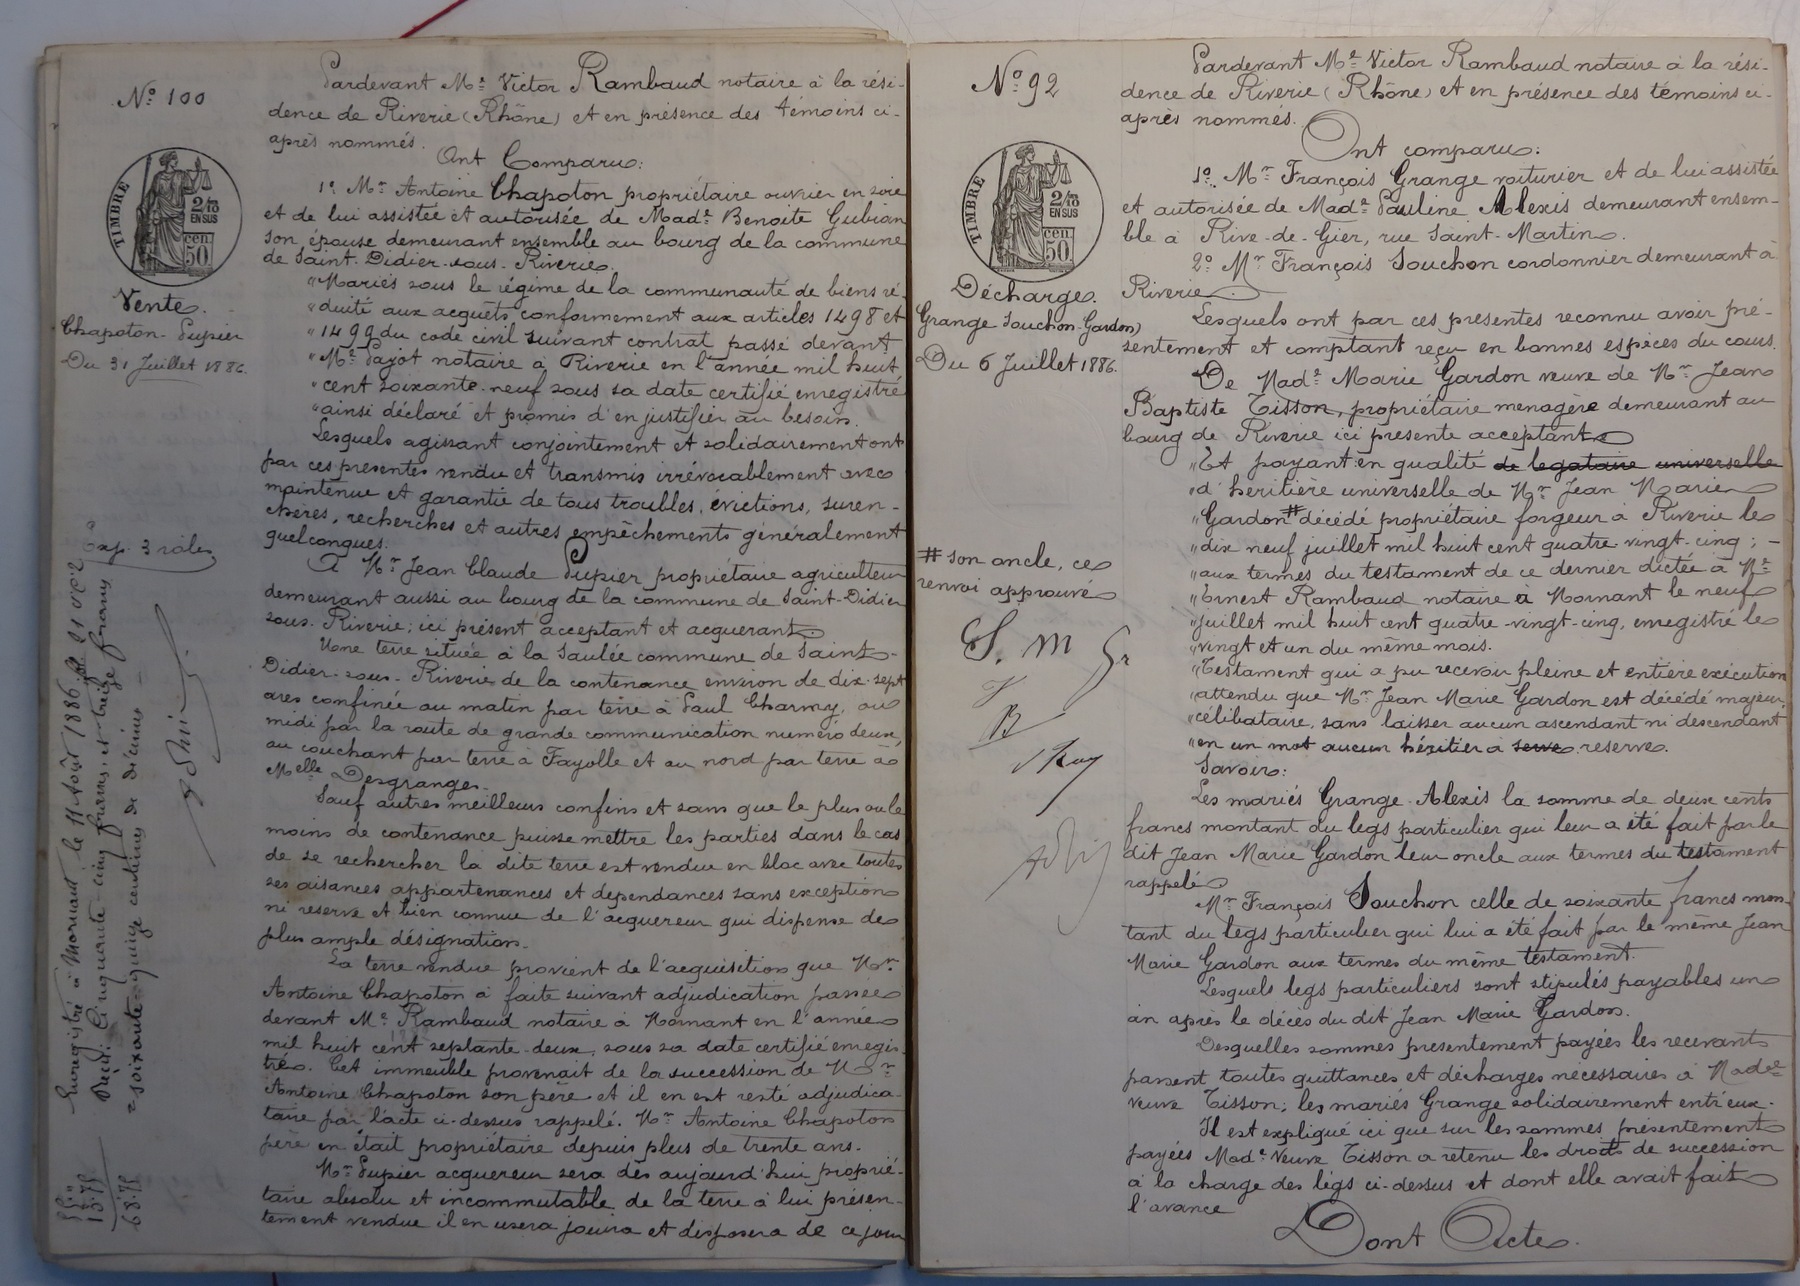 N° 100
TIMBRE
2/10
EN SUS
50 cen
Vente
Chapoton-Pupier
Du 31 Juillet 1886.
Exp. 3 rôles
Enregistré à Mornant, le 11 Août 1886, fol. 21
Reçu: Cinquante-cinq francs, et treize francs
soixante quinze centimes de décimes
55"
13.75
68.75
Pardevant Me Victor Rambaud notaire à la rési-
dence de Riverie (Rhône) et en présence des témoins ci-
après nommés.
Ont Comparu:
1° Mr Antoine Chapoton propriétaire ouvrier en soie
et de lui assistée et autorisée de Made Benoite Gubian
son épouse demeurant ensemble au bourg de la commune
de Saint-Didier-sous-Riverie.
"Mariés sous le régime de la communauté de biens ré-
"duite aux acquêts conformement aux articles 1498 et
"1499 du code civil suivant contrat passé devant
"Me Payot notaire à Riverie en l'année mil huit
"cent soixante-neuf sous sa date certifié enregistré
"ainsi déclaré et promis d'en justifier au besoin.
Lesquels agissant conjointement et solidairement ont
par ces presentes vendu et transmis irrévocablement avec
maintenue et garantie de tous troubles, évictions, suren-
chères, recherches et autres empêchements généralement
quelconques.
A Mr Jean Claude Pupier propriétaire agriculteur
demeurant aussi au bourg de la commune de Saint-Didier
sous-Riverie; ici présent acceptant et acquerant
Une terre située à la Saulée commune de Saint-
Didier-sous-Riverie de la contenance environ de dix-sept
ares confinée au matin par terre à Paul Charmy, au
midi par la route de grande communication numéro deux,
au couchant par terre à Fayolle et au nord par terre à
Melle Desgranges.
Sauf autres meilleurs confins et sans que le plus ou le
moins de contenance puisse mettre les parties dans le cas
de se rechercher la dite terre est vendue en bloc avec toutes
ses aisances appartenances et dependances sans exception
ni reserve et bien connue de l'acquereur qui dispense de
plus ample désignation.
La terre vendue provient de l'acquisition que Mr
Antoine Chapoton a faite suivant adjudication passée
devant Me Rambaud notaire à Mornant en l'année
mil huit cent septante-deux, sous sa date certifié enregis-
tré. Cet immeuble provenait de la succession de Mr
Antoine Chapoton son père et il en est resté adjudica-
taire par l'acte ci-dessus rappelé. Mr Antoine Chapoton
père en était propriétaire depuis plus de trente ans.
Mr Pupier acquereur sera dès aujourd'hui proprié-
taire absolu et incommutable de la terre à lui présen-
tement vendue il en usera jouira et disposera de ce jour
N° 92
TIMBRE
2/10
EN SUS
50 cen
Décharge.
Grange Souchon-Gardon)
Du 6 Juillet 1886.
# son oncle, ce
renvoi approuvé
S. M Gr
Pardevant Me Victor Rambaud notaire à la rési-
dence de Riverie (Rhône) et en présence des témoins ci-
après nommés.
Ont comparu:
1°. Mr François Grange voiturier et de lui assistée
et autorisée de Made Pauline Alexis demeurant ensem-
ble à Rive-de-Gier, rue Saint-Martin.
2° Mr François Souchon cordonnier demeurant à
Riverie.
Lesquels ont par ces presentes reconnu avoir pré-
sentement et comptant reçu en bonnes espèces du cours.
De Made Marie Gardon veuve de Mr Jean
Baptiste Tisson, propriétaire menagère demeurant au
bourg de Riverie ici presente acceptant
"Et payant en qualité de legataire universelle
"d'heritière universelle de Mr Jean Marie
"Gardon # décédé propriétaire forgeur à Riverie le
"dix neuf juillet mil huit cent quatre-vingt-cinq; -
"aux termes du testament de ce dernier dictée à Me
"Ernest Rambaud notaire à Mornant le neuf
"juillet mil huit cent quatre-vingt-cinq, enregistré le
"vingt et un du même mois.
"Testament qui a pu recevoir pleine et entière exécution
"attendu que Mr Jean Marie Gardon est décédé majeur,
"célibataire, sans laisser aucun ascendant ni descendant
"en un mot aucun héritier à serve reserve.
Savoir:
Les mariés Grange-Alexis la somme de deux cents
francs montant du legs particulier qui leur a été fait par le
dit Jean Marie Gardon leur oncle aux termes du testament
rappelé
Mr François Souchon celle de soixante francs mon-
tant du legs particulier qui lui a été fait par le même Jean
Marie Gardon aux termes du même testament.
Lesquels legs particuliers sont stipulés payables un
an après le décès du dit Jean Marie Gardon.
Desquelles sommes presentement payées les recevants
passent toutes quittances et décharges nécessaires à Made
veuve Tisson; les mariés Grange solidairement entr'eux.
Il est expliqué ici que sur les sommes présentement
payées Made Veuve Tisson a retenu les droits de succession
à la charge des legs ci-dessus et dont elle avait fait
l'avance
Dont Acte.